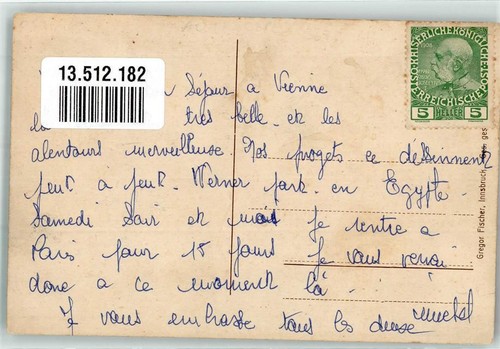 13.512.182
Séjour a Vienne
très belle et les
alentours merveilleuse Nos projets ce dessinnent
peut a peut. Werner part en Egypte
Samedi Soir et moi je rentre a
Paris pour 15 jours Je vous verrai
donc a ce moment là
Je vous embrasse tous les deuse Michel
KAISERLICHE KÖNIGLICHE
ÖSTERREICHISCHE POST
1908
5 HELLER 5
Gregor Fischer, Innsbruck, ges